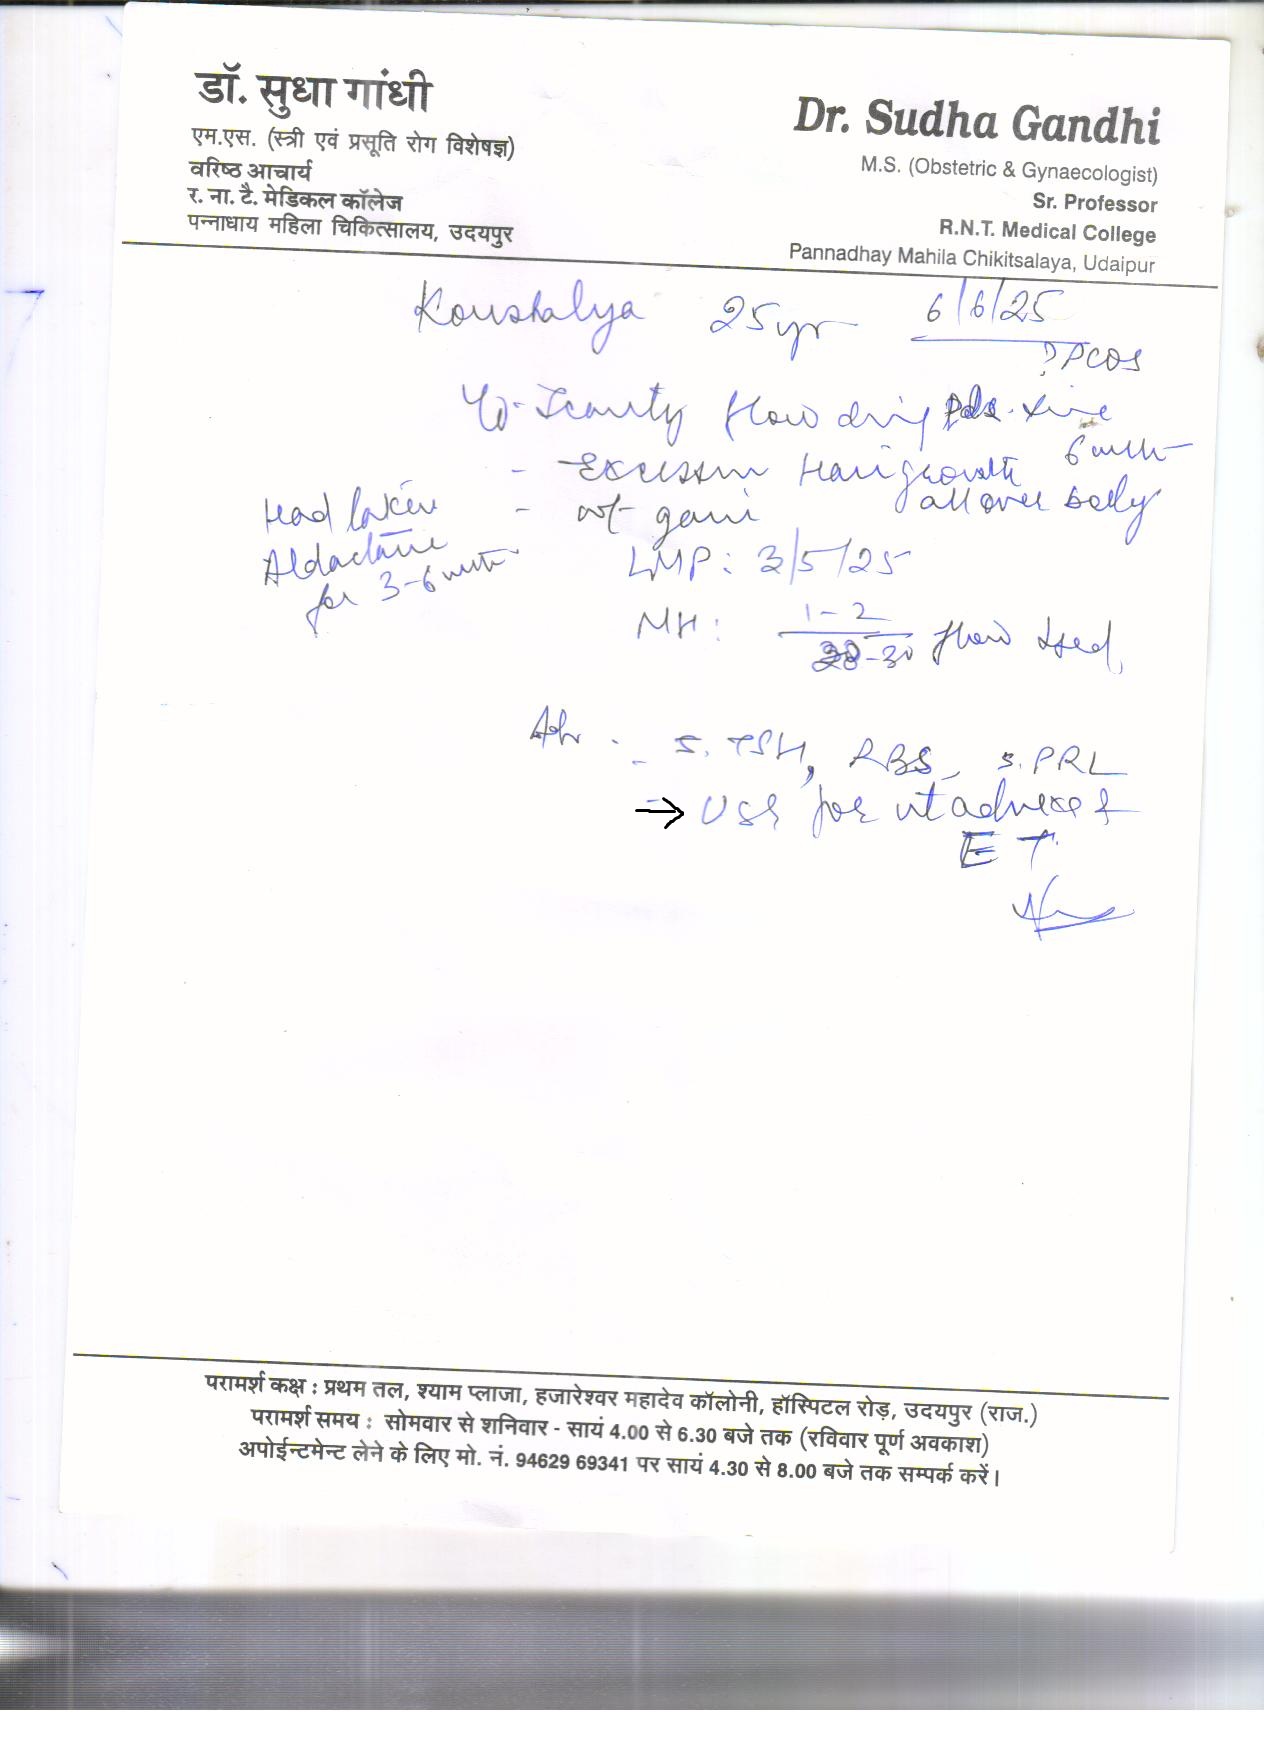 डॉ. सुधा गांधी
एम.एस. (स्त्री एवं प्रसूति रोग विशेषज्ञ)
वरिष्ठ आचार्य
र. ना. टै. मेडिकल कॉलेज
पन्नाधाय महिला चिकित्सालय, उदयपुर
Dr. Sudha Gandhi
M.S. (Obstetric & Gynaecologist)
Sr. Professor
R.N.T. Medical College
Pannadhay Mahila Chikitsalaya, Udaipur
Koushalya 25 yr 6/6/25
? PCOS
Scanty flow
6 mth
- Excessive Hair growth
all over body
- wt gain
Had taken
Aldactone
for 3-6 mth
LMP: 3/5/25
MH: 1-2
28-30 flow
Adv - S. TSH, RBS, S. PRL
→ USG for ut adnexa &
ET
परामर्श कक्ष : प्रथम तल, श्याम प्लाजा, हजारेश्वर महादेव कॉलोनी, हॉस्पिटल रोड़, उदयपुर (राज.)
परामर्श समय : सोमवार से शनिवार - सायं 4.00 से 6.30 बजे तक (रविवार पूर्ण अवकाश)
अपोईन्टमेन्ट लेने के लिए मो. नं. 94629 69341 पर सायं 4.30 से 8.00 बजे तक सम्पर्क करें।